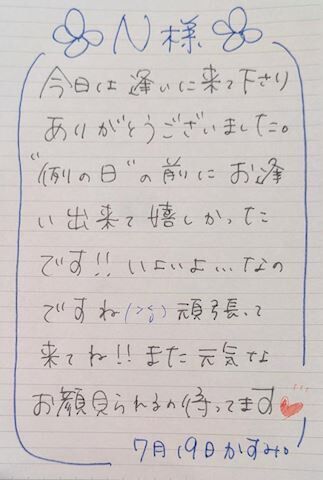 N様
今日は逢いに来て下さり
ありがとうございました。
"例の日"の前にお逢
い出来て嬉しかった
です!! いよいよ…なの
ですね 頑張って
来てね!! また元気な
お顔見られるの待ってます
7月19日かすみ。